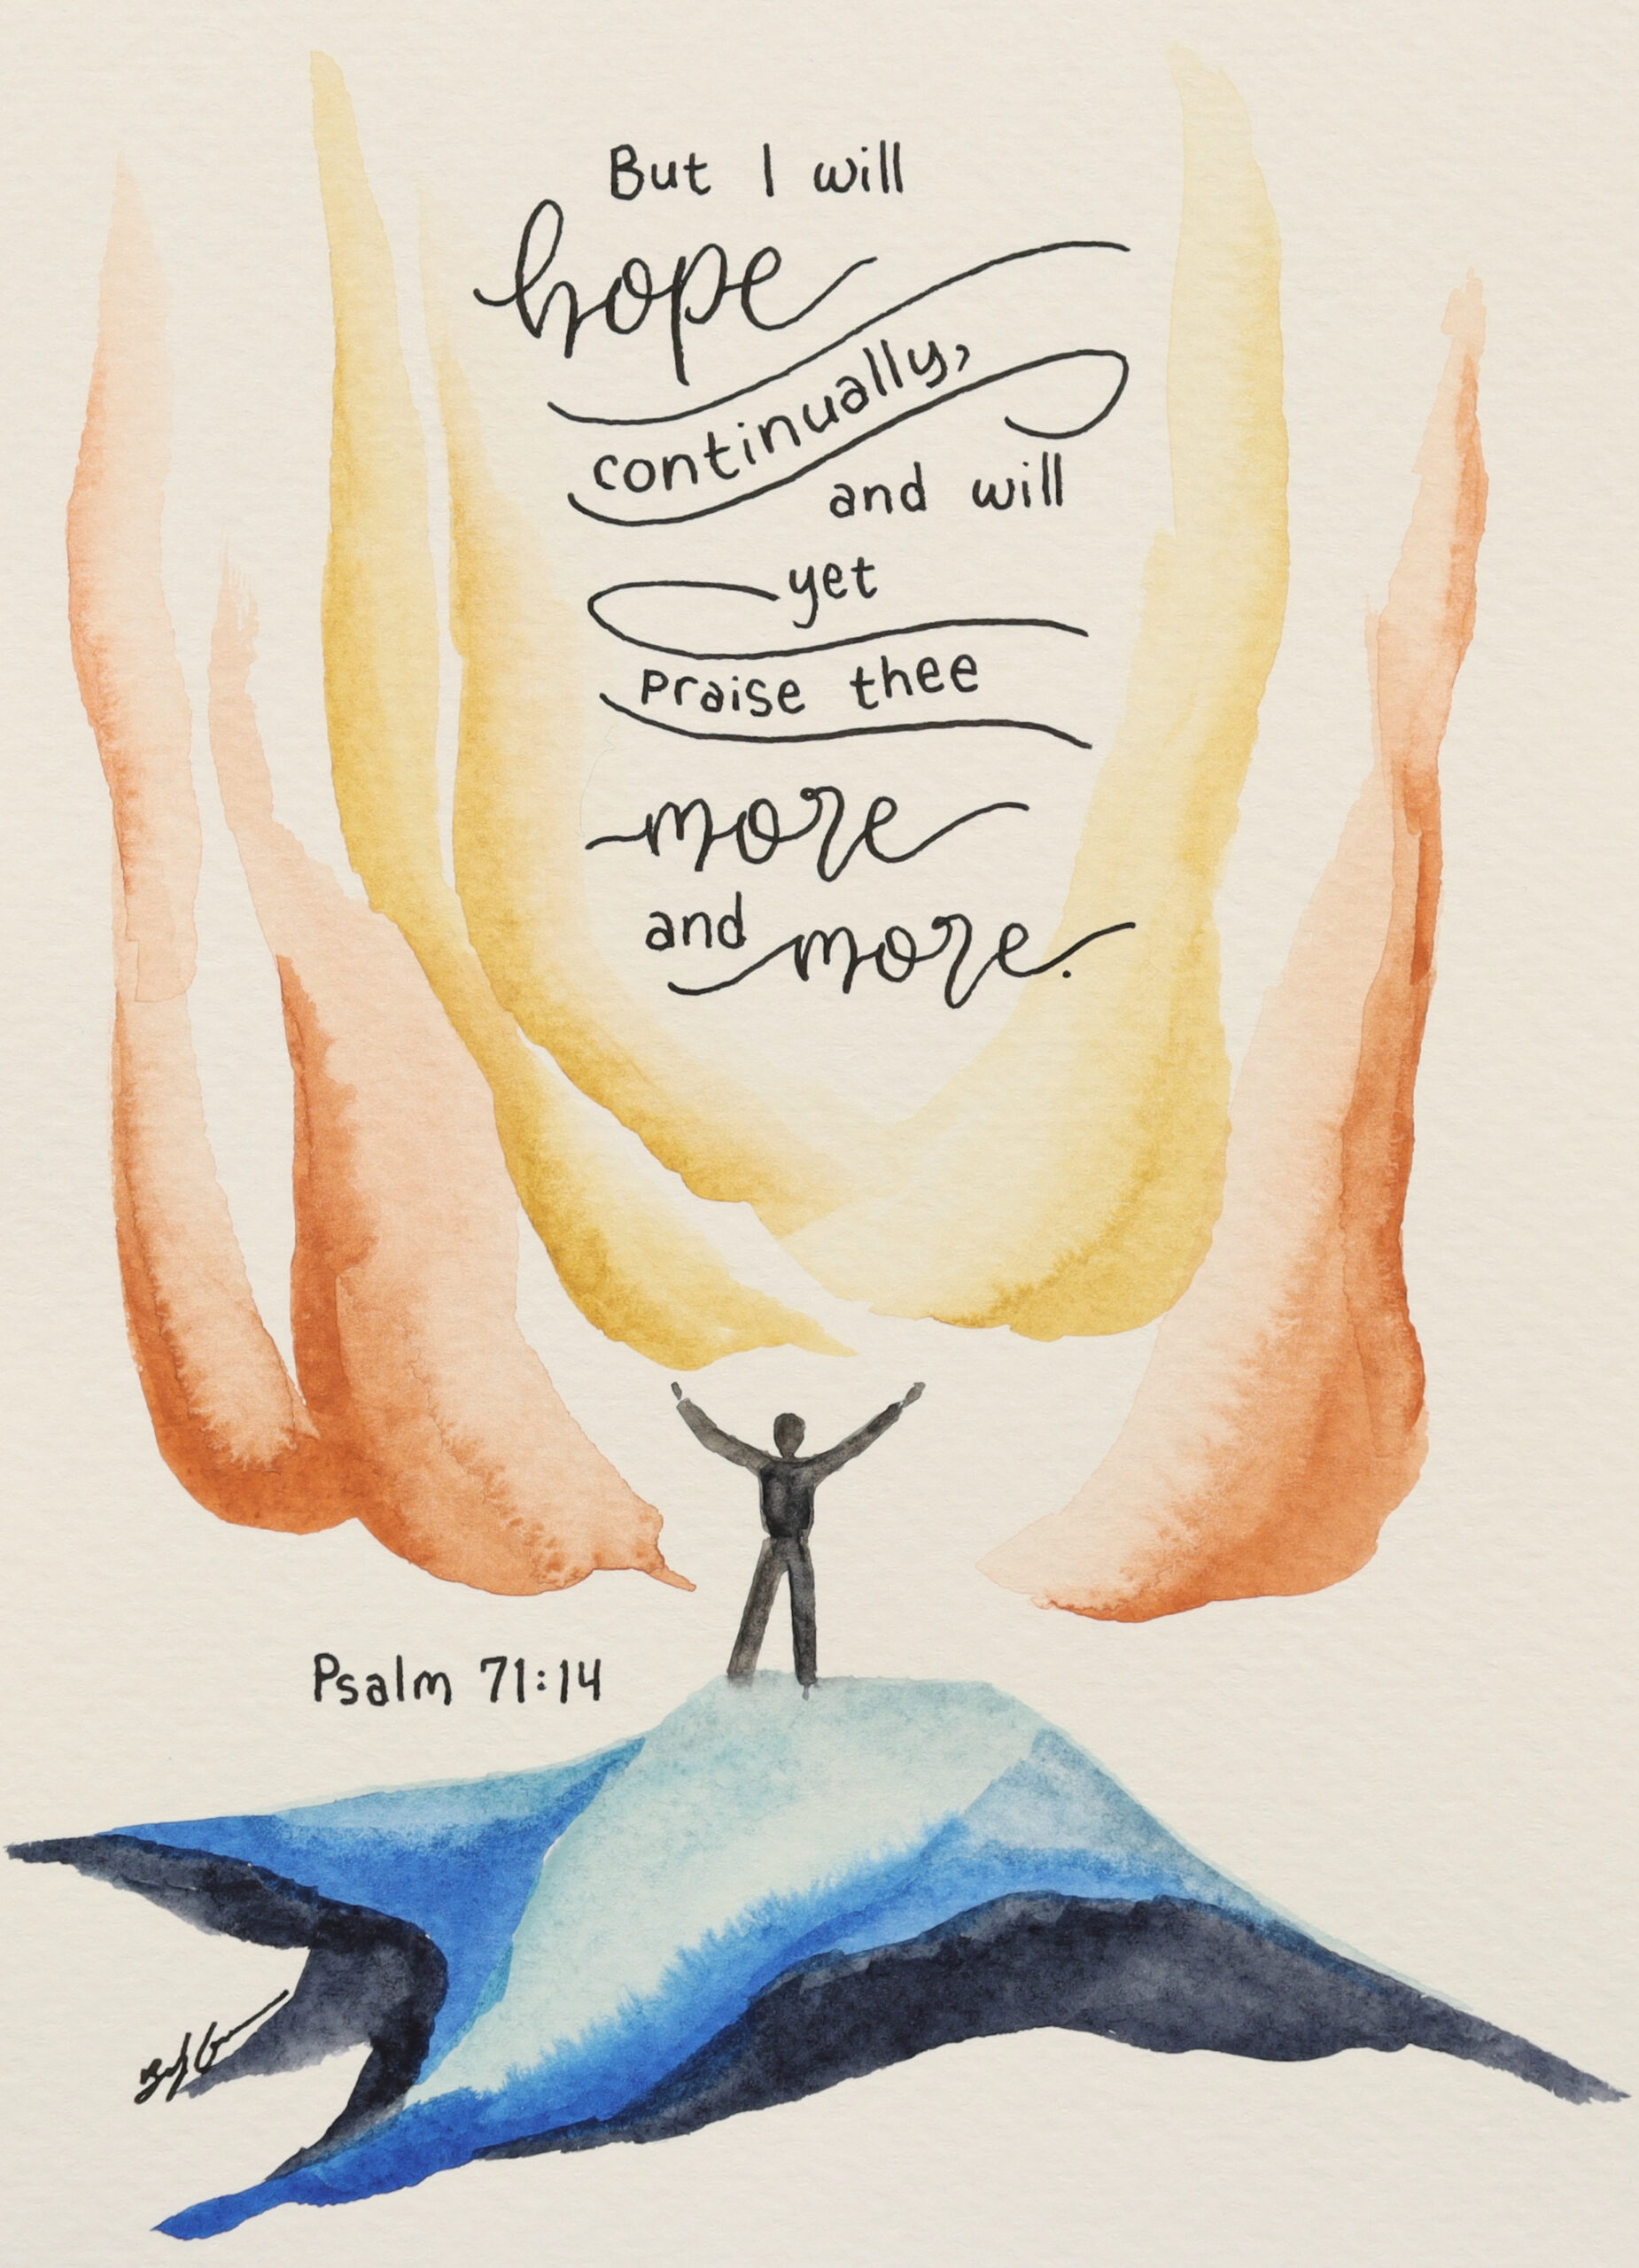 But I will
hope
continually,
and will
yet
Praise thee
more
and more.
Psalm 71:14